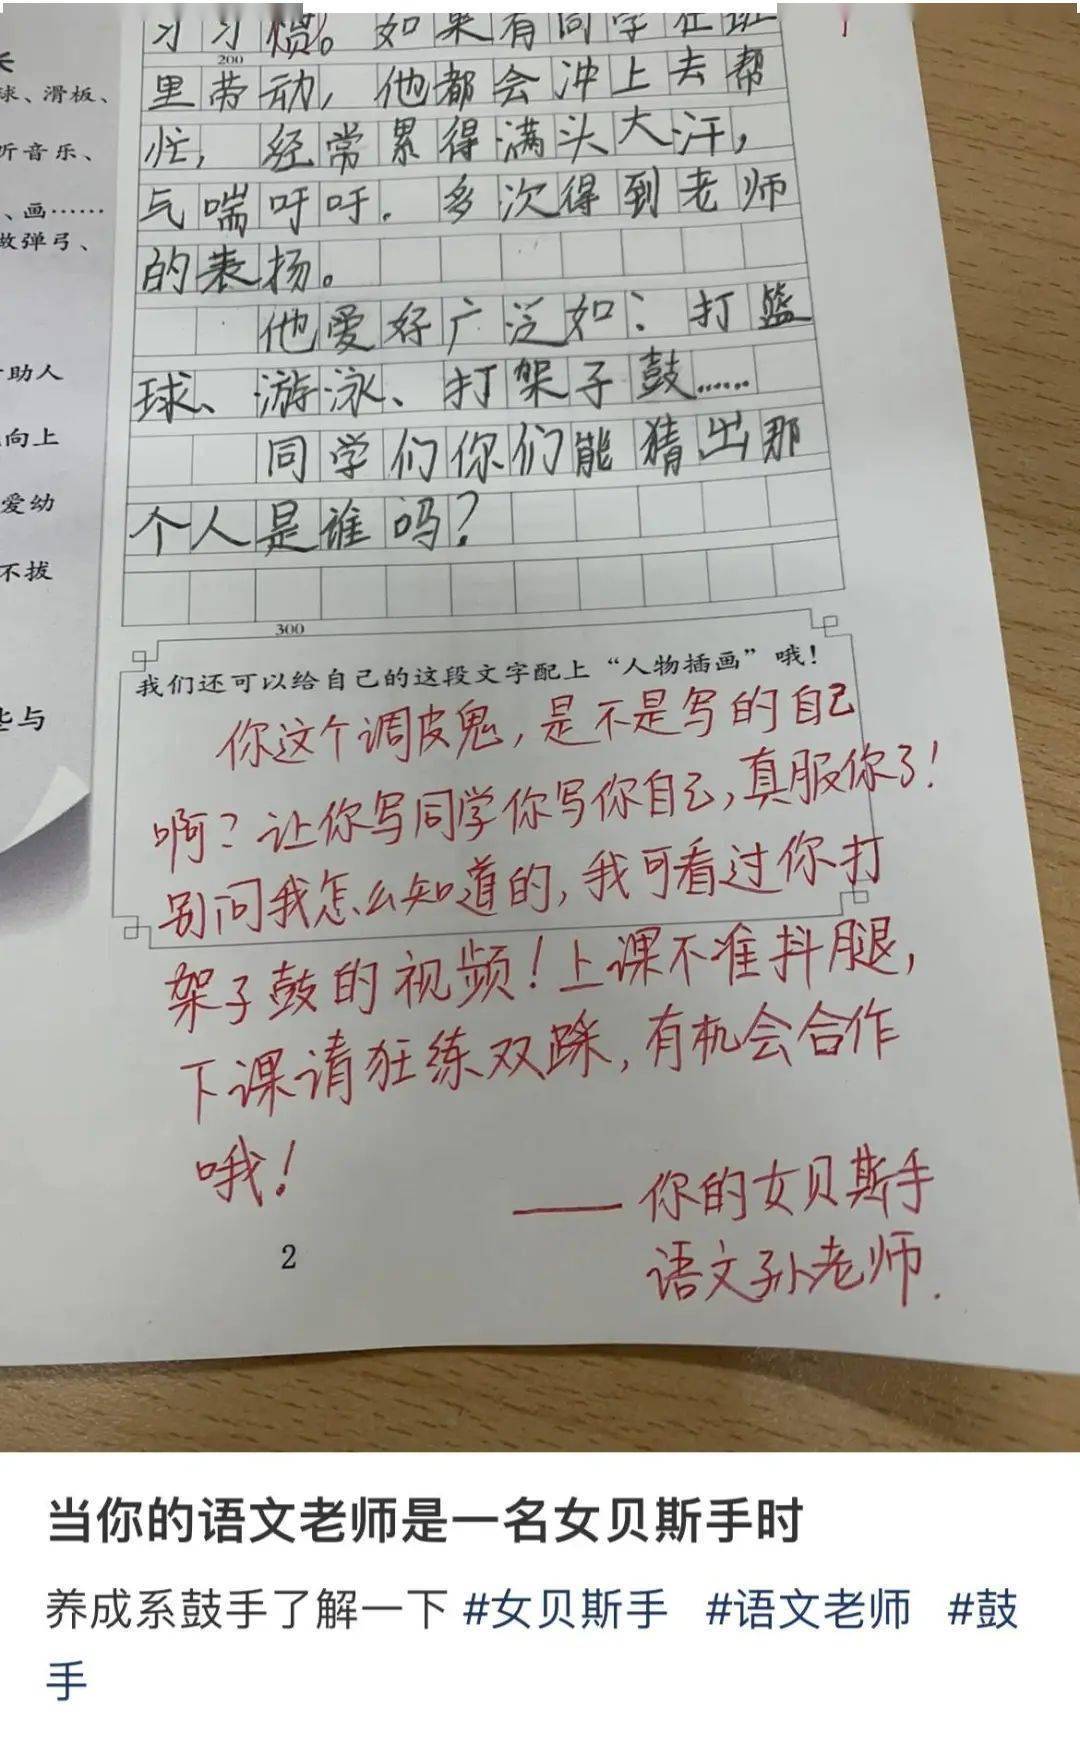 长
球、滑板、
听音乐、
、画……
做弹弓、
助人
向上
爱幼
不拔
些与
习习惯。如果有同学在班
200
里劳动，他都会冲上去帮
忙，经常累得满头大汗，
气喘吁吁．多次得到老师
的表扬。
他爱好广泛如：打篮
球、游泳、打架子鼓……
同学们你们能猜出那
个人是谁吗？
300
我们还可以给自己的这段文字配上“人物插画”哦！
你这个调皮鬼，是不是写的自己
啊？让你写同学你写你自己，真服你了！
别问我怎么知道的，我可看过你打
架子鼓的视频！上课不准抖腿，
下课请狂练双踩，有机会合作
哦！
——你的女贝斯手
语文孙老师．
2
当你的语文老师是一名女贝斯手时
养成系鼓手了解一下 #女贝斯手 #语文老师 #鼓
手